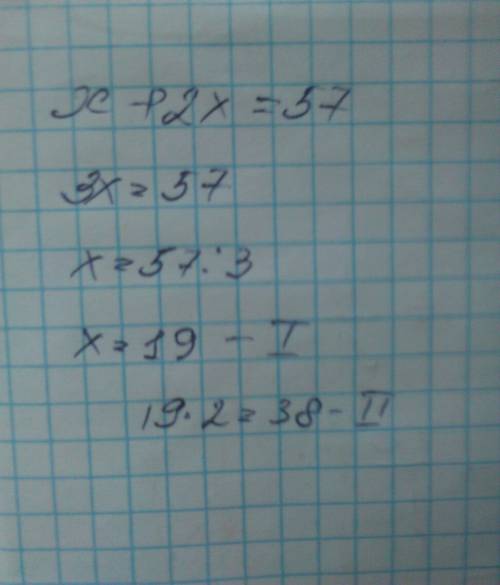 x + 2x = 57
3x = 57
x = 57 : 3
x = 19 - I
19 · 2 = 38 - II